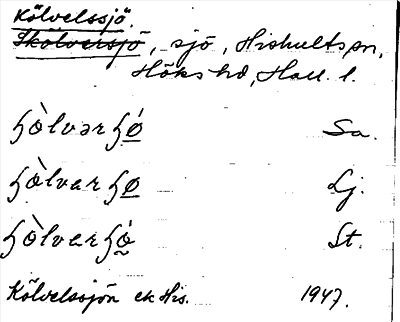 Kölvelssjö.
Skölversjö, sjö, Hishults sn,
Höks hd, Hall. l.
ɧòlvərɧǿ Sa.
ɧòlvarɧø Lj.
ɧòlvarɧǿ St.
Kölvelssjön ek His. 1947.